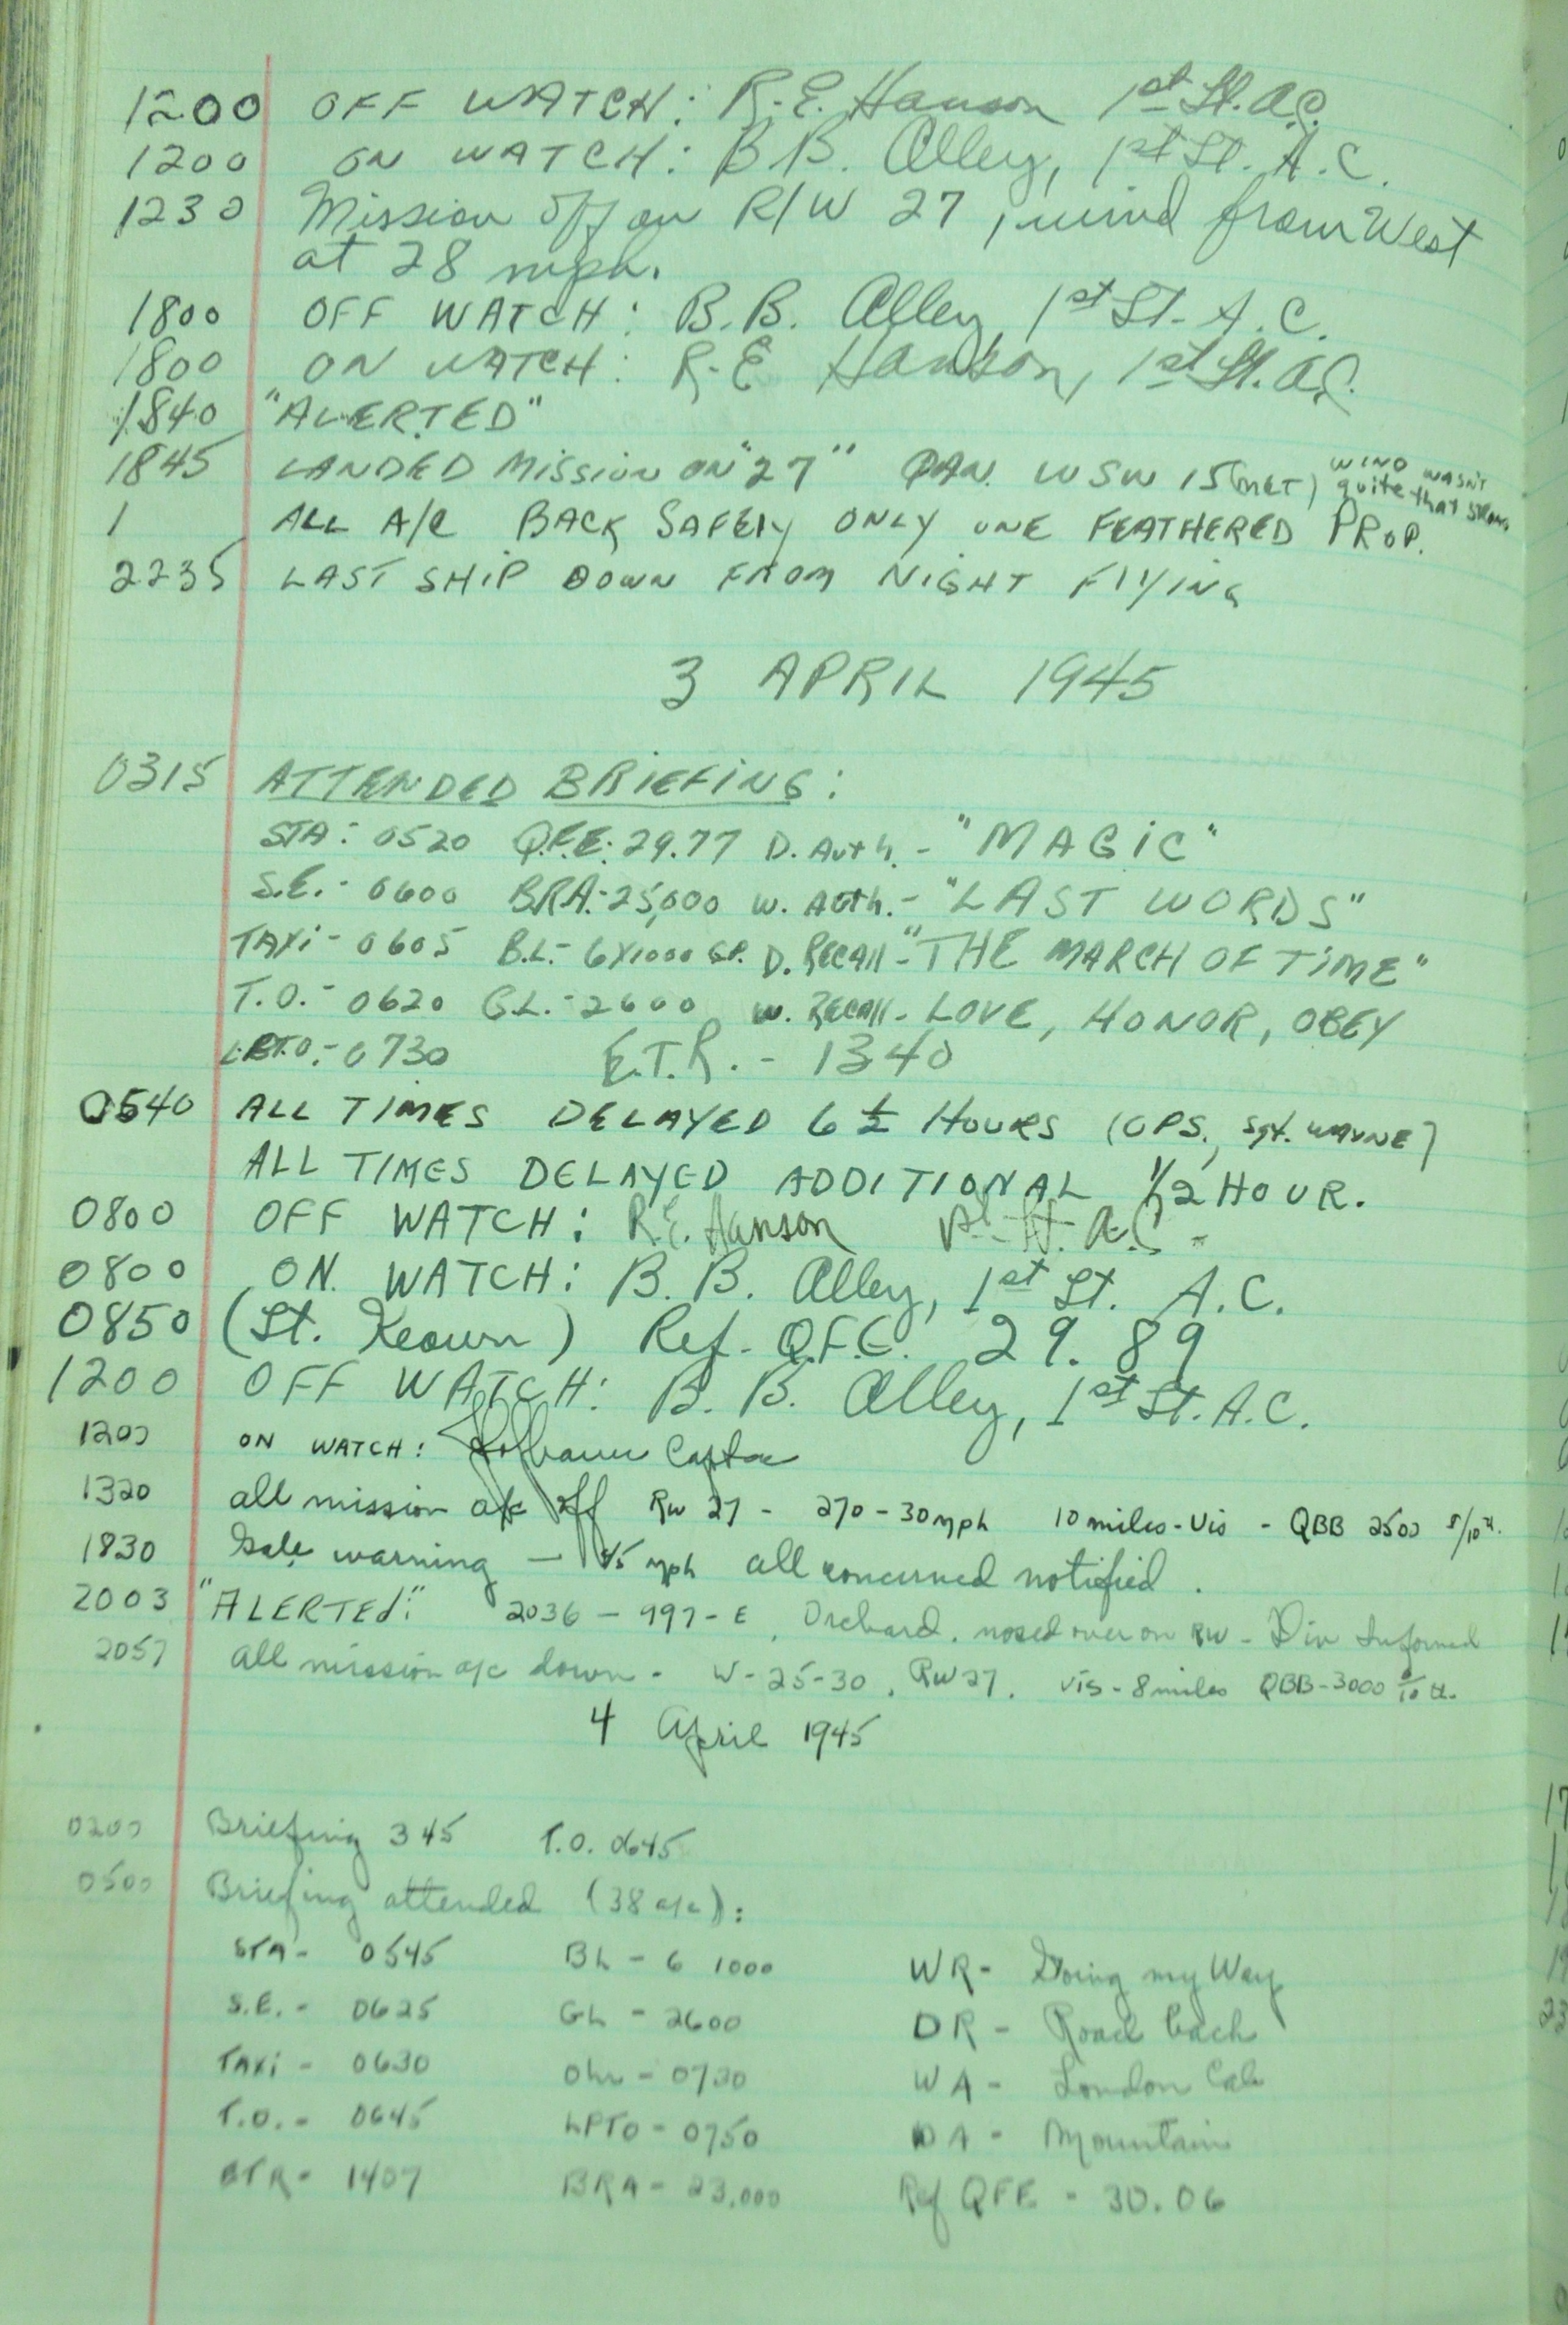 1200 OFF WATCH: R.E. Hanson 1st Lt. A.C.
1200 ON WATCH: B.B. Alley, 1st Lt. A.C.
1230 Mission off on R/W 27, wind from West
at 28 mph.
1800 OFF WATCH: B.B. Alley, 1st Lt. A.C.
1800 ON WATCH: R.E Hanson, 1st Lt. A.C.
1840 "ALERTED"
1845 LANDED MISSION ON "27" QAN. WSW 15 (MET) WIND WASN'T
quite that strong
1 ALL A/C BACK SAFELY ONLY ONE FEATHERED PROP.
2235 LAST SHIP DOWN FROM NIGHT FLYING
3 APRIL 1945
0315 ATTENDED BRIEFING:
STA: 0520 Q.F.E: 29.77 D. Auth. - "MAGIC"
S.E. - 0600 BRA. - 25,000 W. Auth. - "LAST WORDS"
TAXI - 0605 B.L. - 6X1000 G.P. D. RECALL - "THE MARCH OF TIME"
T.O. - 0620 G.L. - 2600 W. RECALL - LOVE, HONOR, OBEY
0730 E.T.R. - 1340
0540 ALL TIMES DELAYED 6 1/2 HOURS (OPS., Sgt. WAYNE)
ALL TIMES DELAYED ADDITIONAL 1/2 HOUR.
0800 OFF WATCH: R.E. Hanson 1st Lt. A.C.
0800 ON WATCH: B.B. Alley, 1st Lt. A.C.
0850 (Lt. Keown) Ref. Q.F.E. 29.89
1200 OFF WATCH: B.B. Alley, 1st Lt. A.C.
1200 ON WATCH: Capt ac
1320 all mission a/c off RW 27 - 270 - 30 mph 10 miles - Vis - QBB 2500 8/10th.
1830 Gale warning — 45 mph all concerned notified.
2003 "ALERTEd" 2036 - 997 - E, Orchard, nosed over on RW - Div Informed
2057 all mission a/c down - W - 25-30, RW 27. Vis - 8 miles QBB - 3000
4 April 1945
0200 Briefing 345 T.O. 0645
0500 Briefing attended (38 a/c):
STA - 0545 BL - 6 1000 WR - Going my Way
S.E. - 0625 GL - 2600 DR - Road back
TAXI - 0630 0730 WA - London Cab
T.O. - 0645 LPTO - 0750 DA - Mountain
ETR - 1407 BRA - 23,000 Ref QFE - 30.06